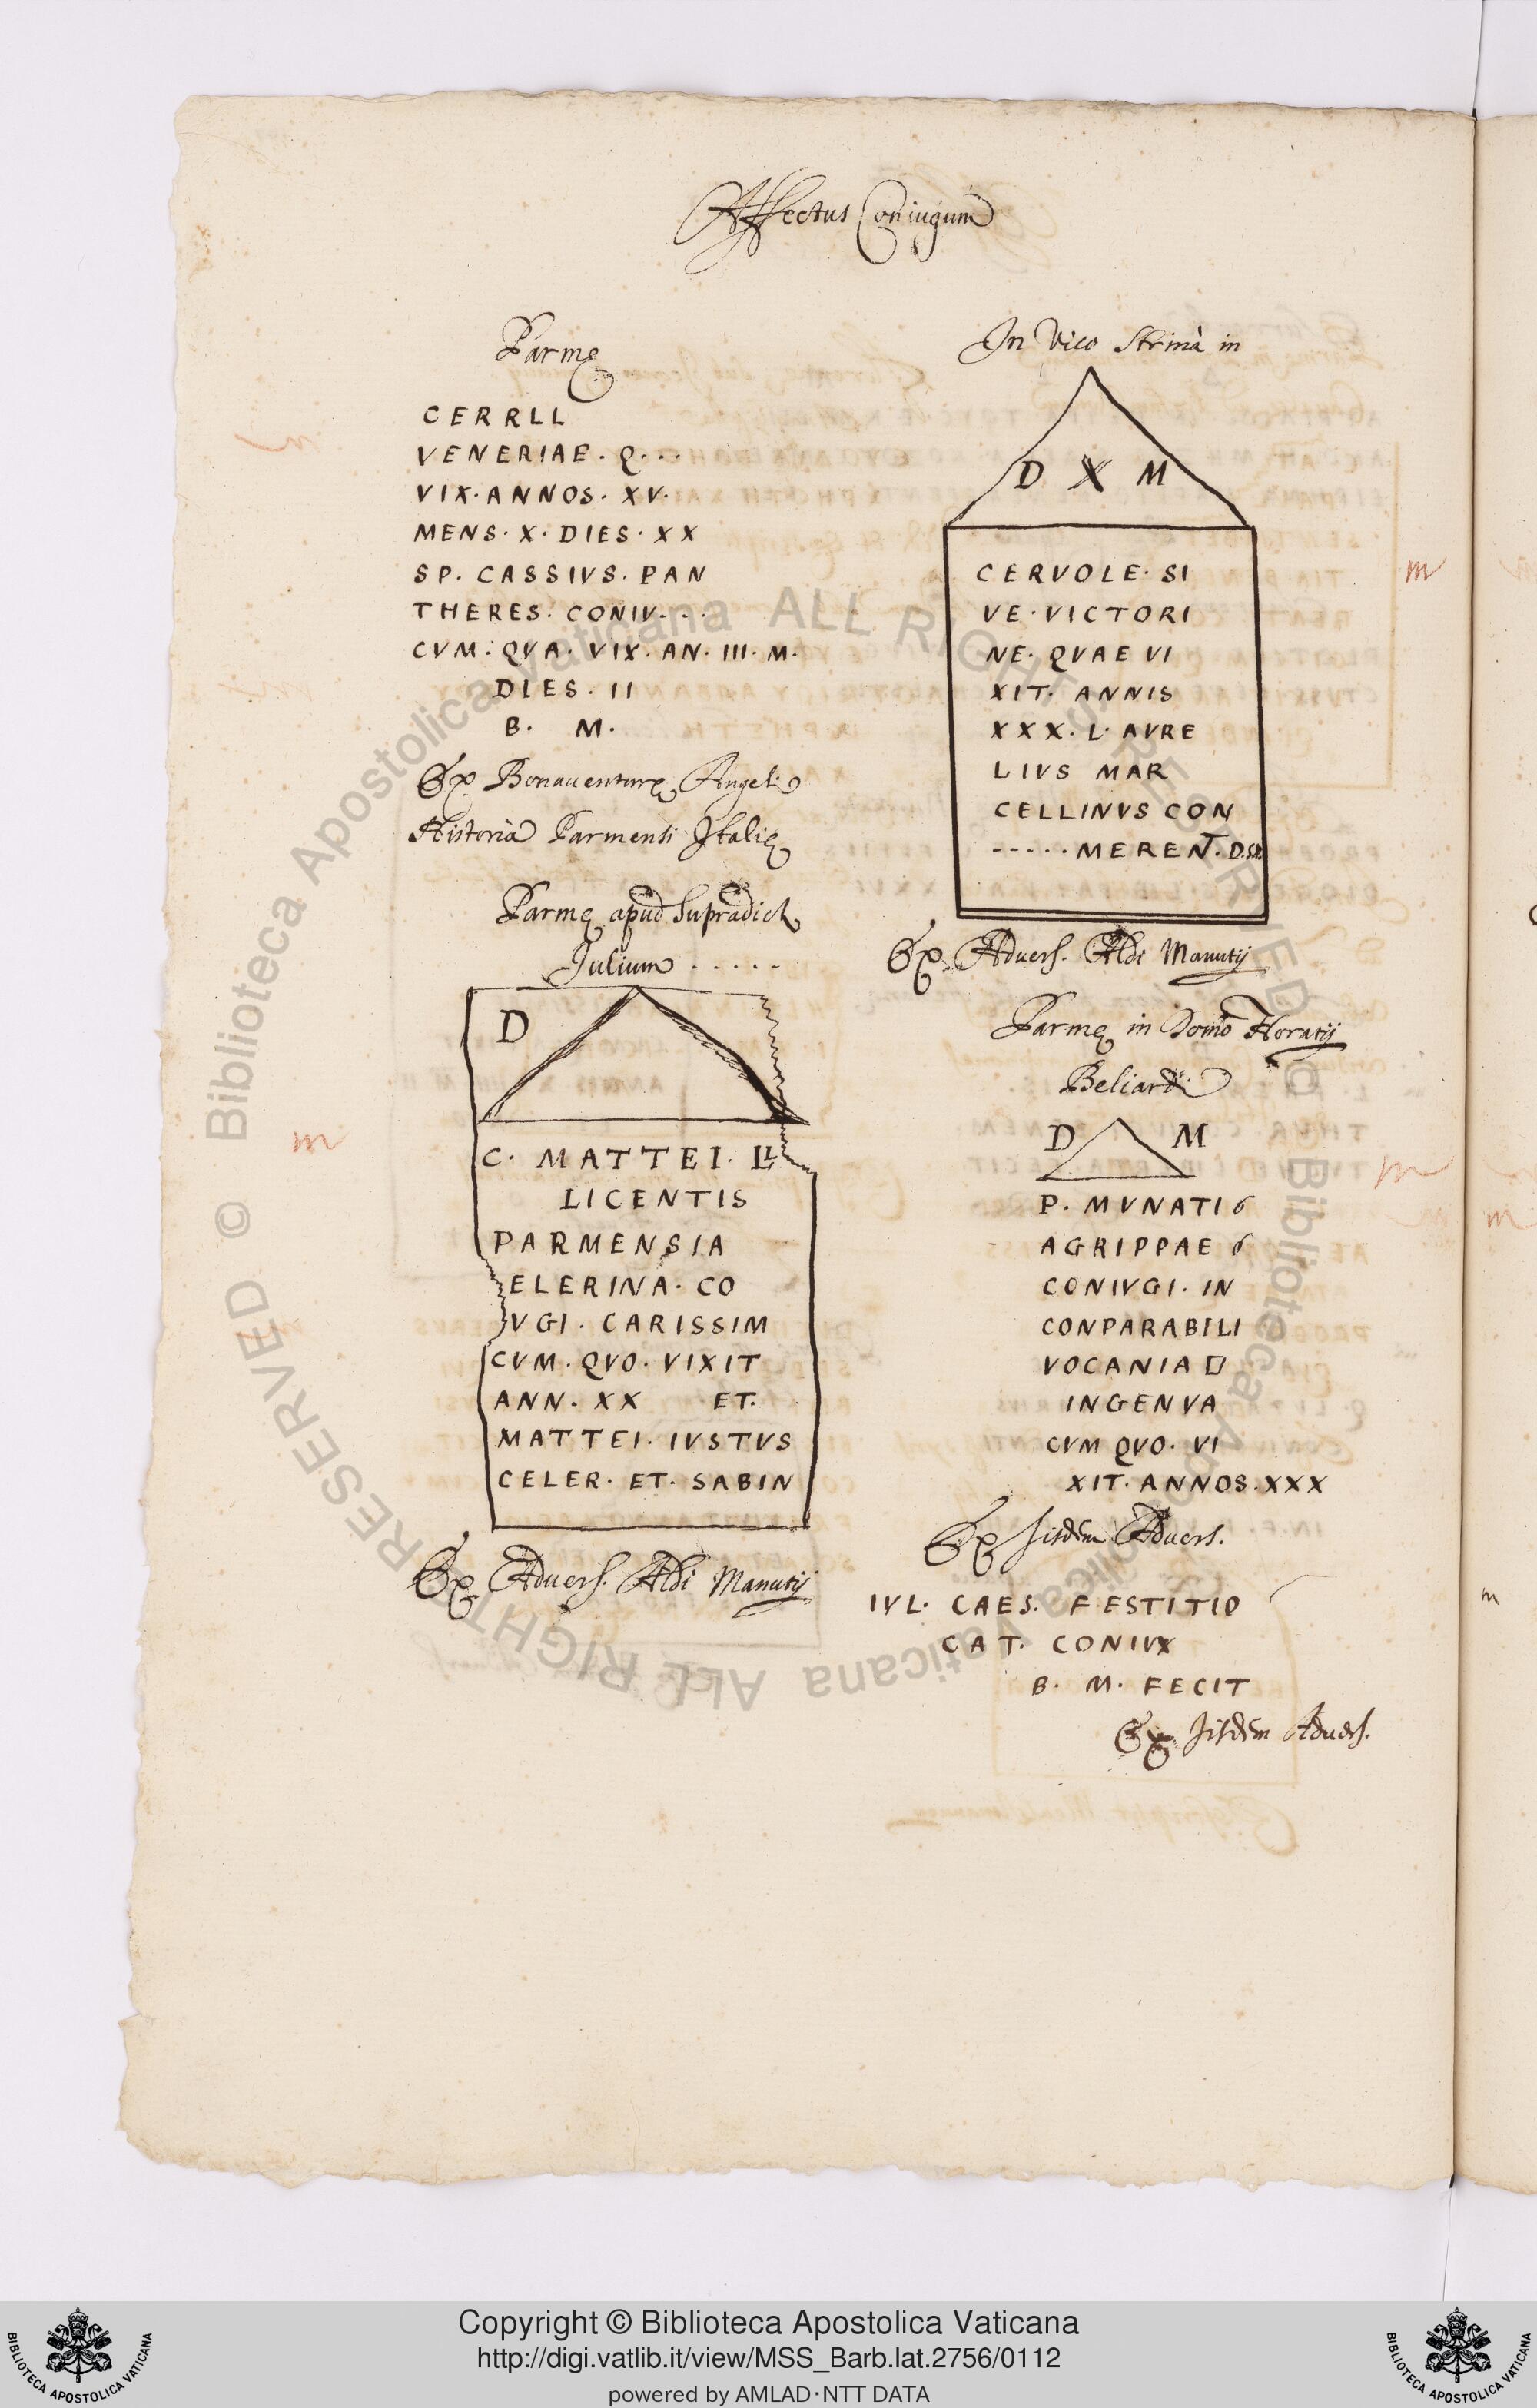 Affectus Coniugum
Parmę
CERRLL
VENERIAE. Q...
VIX. ANNOS. XV.
MENS. X. DIES. XX
SP. CASSIVS. PAN
THERES. CONIV...
CVM. QVA. VIX. AN. III. M.
DIES. II
B. M.
Ex Bonauenturę Angeli
Historia Parmensi Italię
Parmę apud supradict
Julium .....
D
C. MATTEI. LL
LICENTIS
PARMENSIA
ELERINA. CO
VGI. CARISSIM
CVM. QVO. VIXIT
ANN. XX ET.
MATTEI. IVSTVS
CELER. ET. SABIN
Ex Aduers. Aldi Manutij
In Vico Strinà in
D X M
CERVOLE. SI
VE. VICTORI
NE. QVAE VI
XIT. ANNIS
XXX. L. AVRE
LIVS MAR
CELLINVS CON
..... MERENT.
Ex Aduers. Aldi Manutij
Parmę in Domo Horatij
Beliardi
D M
P. MVNATI
AGRIPPAE
CONIVGI. IN
CONPARABILI
VOCANIA
INGENVA
CVM QVO. VI
XIT. ANNOS. XXX
Ex Iisdem Aduers.
IVL. CAES. FESTITIO
CAT. CONIVX
B. M. FECIT
Ex Iisdem Aduers.
m
m
m
m
© Biblioteca Apostolica Vaticana ALL RIGHTS RESERVED
© Biblioteca Apostolica Vaticana ALL RIGHTS RESERVED
Copyright © Biblioteca Apostolica Vaticana
http://digi.vatlib.it/view/MSS_Barb.lat.2756/0112
powered by AMLAD·NTT DATA
BIBLIOTECA APOSTOLICA VATICANA
BIBLIOTECA APOSTOLICA VATICANA